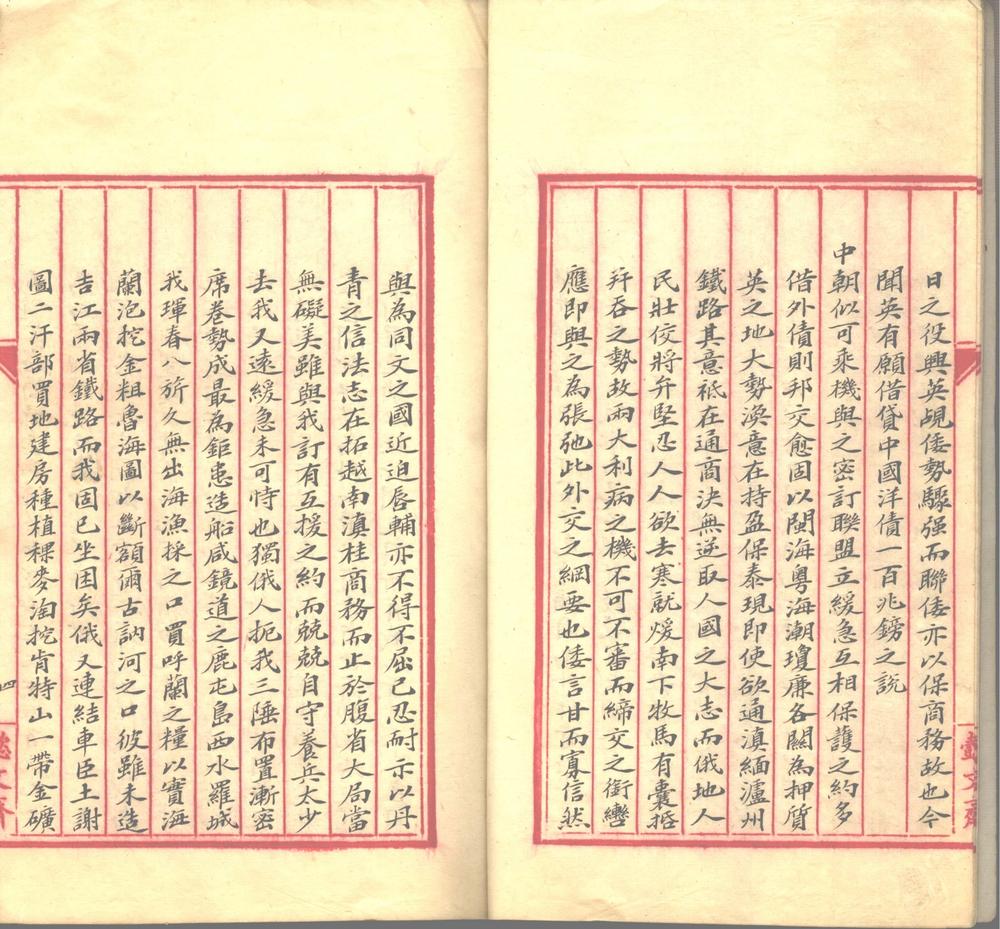 日之役興英覘倭勢驟强而聯倭亦以保商務故也今
聞英有願借貸中國洋債一百兆鎊之説
中朝似可乘機與之密訂聯盟立緩急互相保護之約多
借外債則邦交愈固以閩海粵海潮瓊廉各關為押質
英之地大勢渙意在持盈保泰現即使欲通滇緬瀘州
鐵路其意祗在通商決無逆取人國之大志而俄地人
民壯佼將弁堅忍人人欲去寒就煖南下牧馬有囊括
幷吞之勢故兩大利病之機不可不審而締交之銜轡
應即與之為張弛此外交之綱要也倭言甘而寡信然
與為同文之國近迫唇輔亦不得不屈己忍耐示以丹
青之信法志在拓越南滇桂商務而止於腹省大局當
無礙美雖與我訂有互援之約而兢兢自守養兵太少
去我又遠緩急未可恃也獨俄人扼我三陲布置漸密
席卷勢成最為鉅患造船咸鏡道之鹿屯島西水羅城
我琿春八旂久無出海漁採之口買呼蘭之糧以實海
蘭泡挖金粗魯海圖以斷額爾古訥河之口彼雖未造
吉江兩省鐵路而我固已坐困矣俄又連結車臣土謝
圖二汗部買地建房種植稞麥淘挖肯特山一帶金礦
四
懿文齋